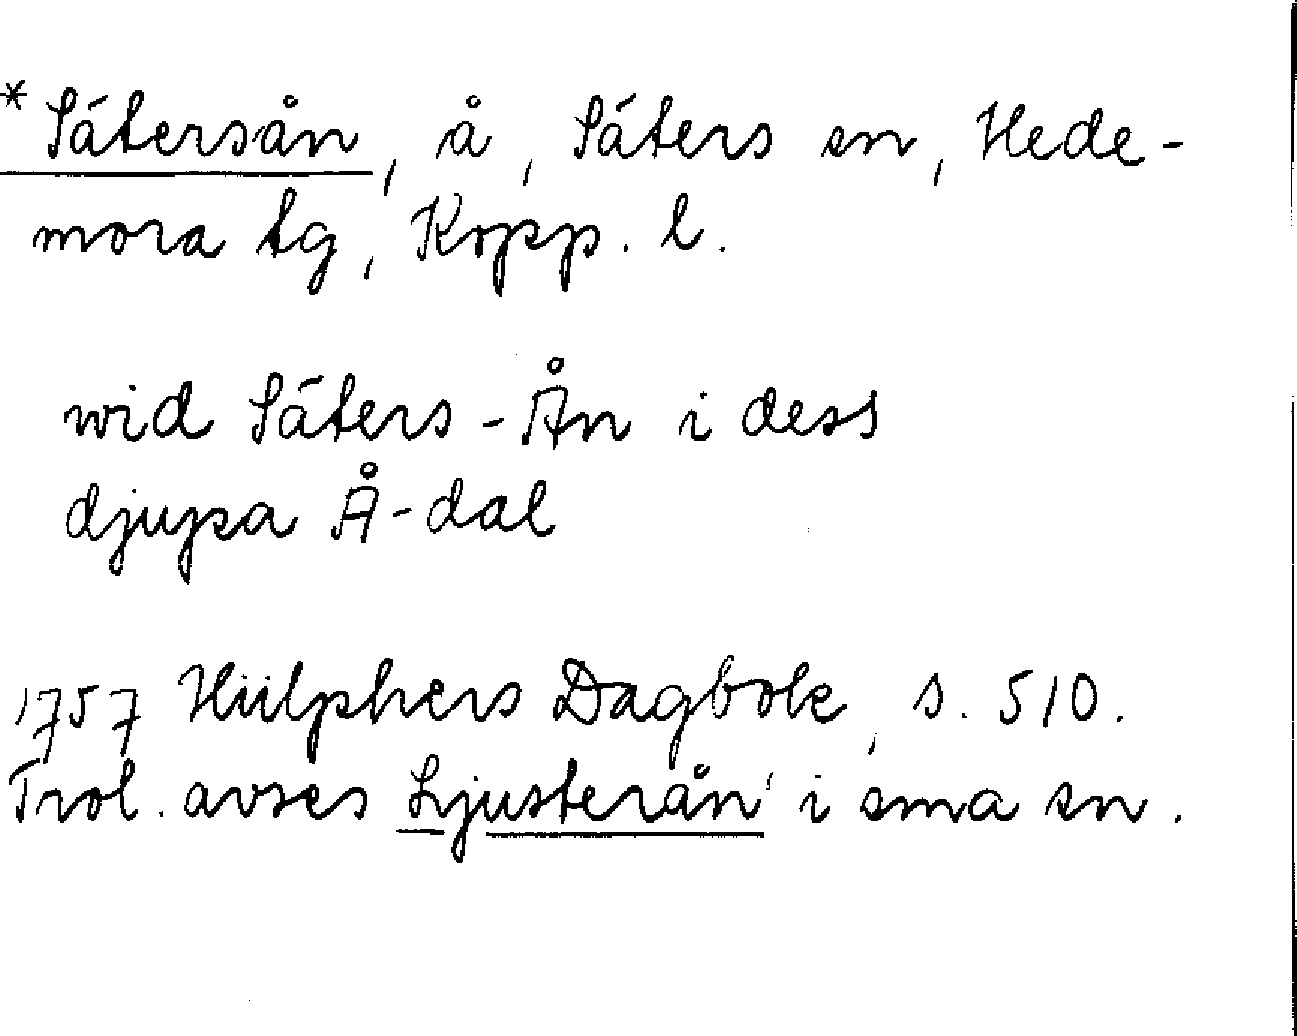 * Sätersån, å, Säters sn, Hede-
mora tg, Kopp. l.
wid Säters-Ån i dess
djupa Å-dal
1757 Hülphers Dagbok, s. 510.
Trol. avses Ljusterån i sma sn.